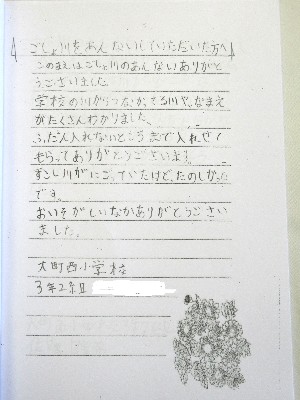 ごしょ川をあんないしていただいた方へ
このまえはごしょ川のあんないありがと
うございました。
学校の川がつながってる川や、なまえ
がたくさんわかりました。
ふだん入れないところまで入れせて
もらってありがとうございます。
すこし川がにごっていたけど、たのしかった
です。
おいそがしいなかありがとうござい
ました。
大町西小学校
3年2組